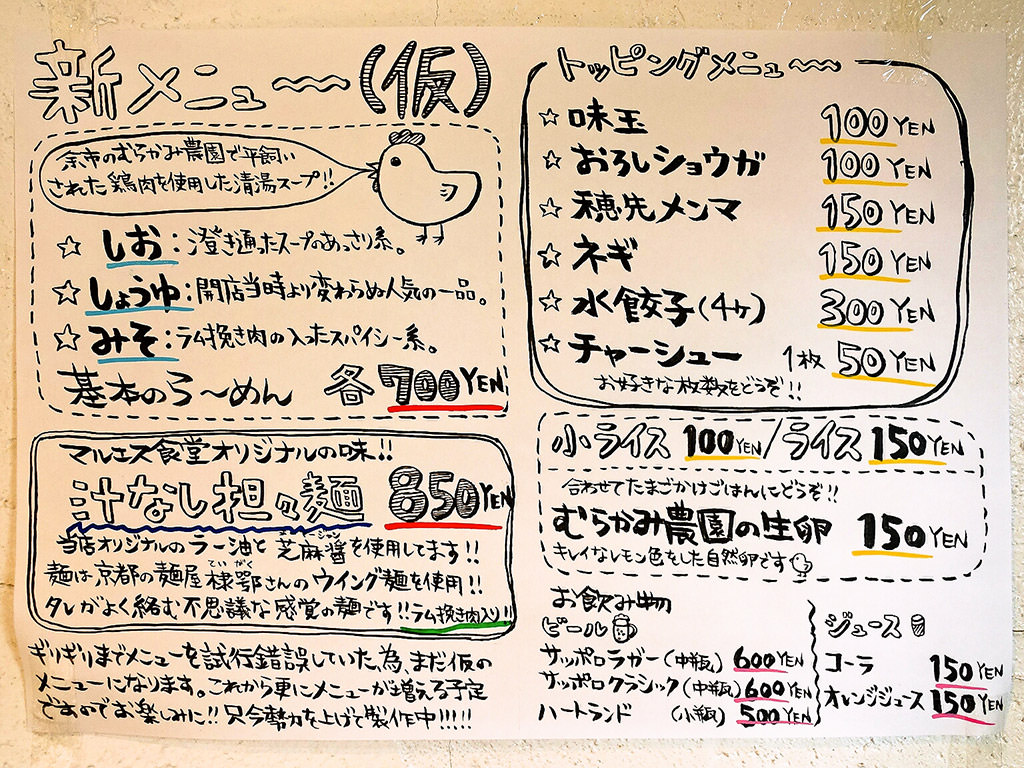 新メニュー〜(仮)
余市のむらかみ農園で平飼い
された鶏肉を使用した清湯スープ!!
☆ しお:澄き通ったスープのあっさり系。
☆ しょうゆ:開店当時より変わらぬ人気の一品。
☆ みそ:ラム挽き肉の入ったスパイシー系。
基本のら〜めん 各700YEN
マルエス食堂オリジナルの味!!
汁なし担々麺 850YEN
当店オリジナルのラー油と芝麻醤を使用してます!!
ジャン
麺は京都の麺屋棣鄂さんのウイング麺を使用!!
ていがく
タレがよく絡む不思議な感覚の麺です!!ラム挽き肉入り!!
ギリギリまでメニューを試行錯誤していた為、まだ仮の
メニューになります。これから更にメニューが増える予定
ですのでお楽しみに!!只今勢力を上げて製作中!!!!!
トッピングメニュー〜
☆ 味玉 100YEN
☆ おろしショウガ 100YEN
☆ 穂先メンマ 150YEN
☆ ネギ 150YEN
☆ 水餃子(4ヶ) 300YEN
☆ チャーシュー 1枚 50YEN
お好きな枚数をどうぞ!!
小ライス 100YEN/ライス 150YEN
合わせてたまごかけごはんにどうぞ!!
むらかみ農園の生卵 150YEN
キレイなレモン色をした自然卵です
お飲み物
ビール
サッポロラガー(中瓶) 600YEN
サッポロクラシック(中瓶) 600YEN
ハートランド (小瓶) 500YEN
ジュース
コーラ 150YEN
オレンジジュース 150YEN